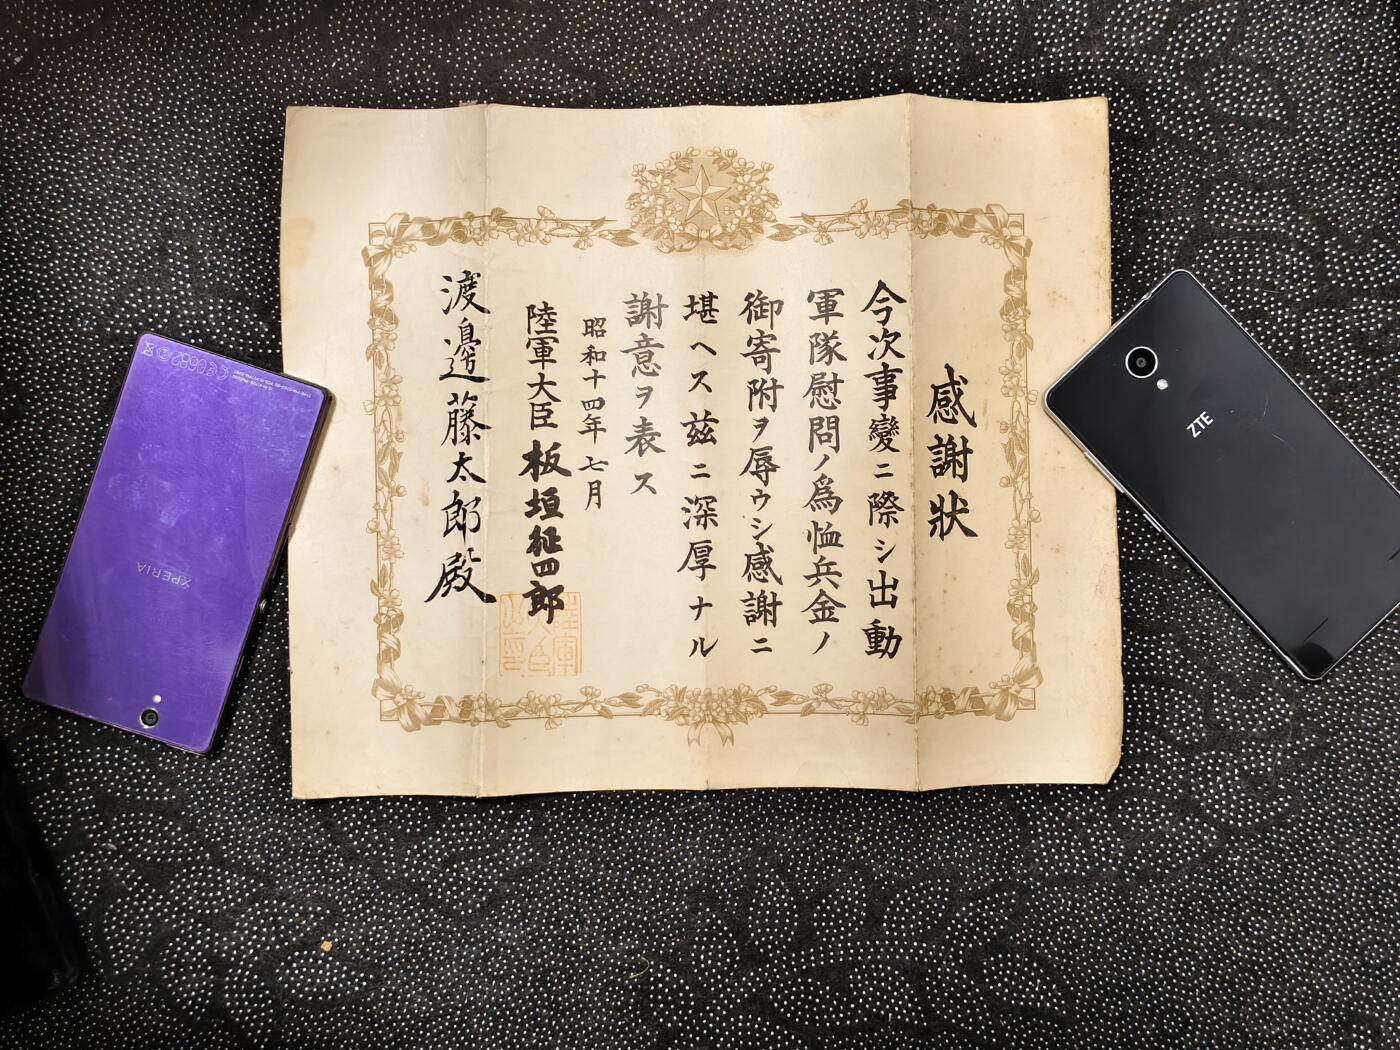 感謝狀
今次事變ニ際シ出動
軍隊慰問ノ爲恤兵金ノ
御寄附ヲ辱ウシ感謝ニ
堪ヘス玆ニ深厚ナル
謝意ヲ表ス
昭和十四年七月
陸軍大臣板垣征四郎
渡邊藤太郎殿
XPERIA
ZTE